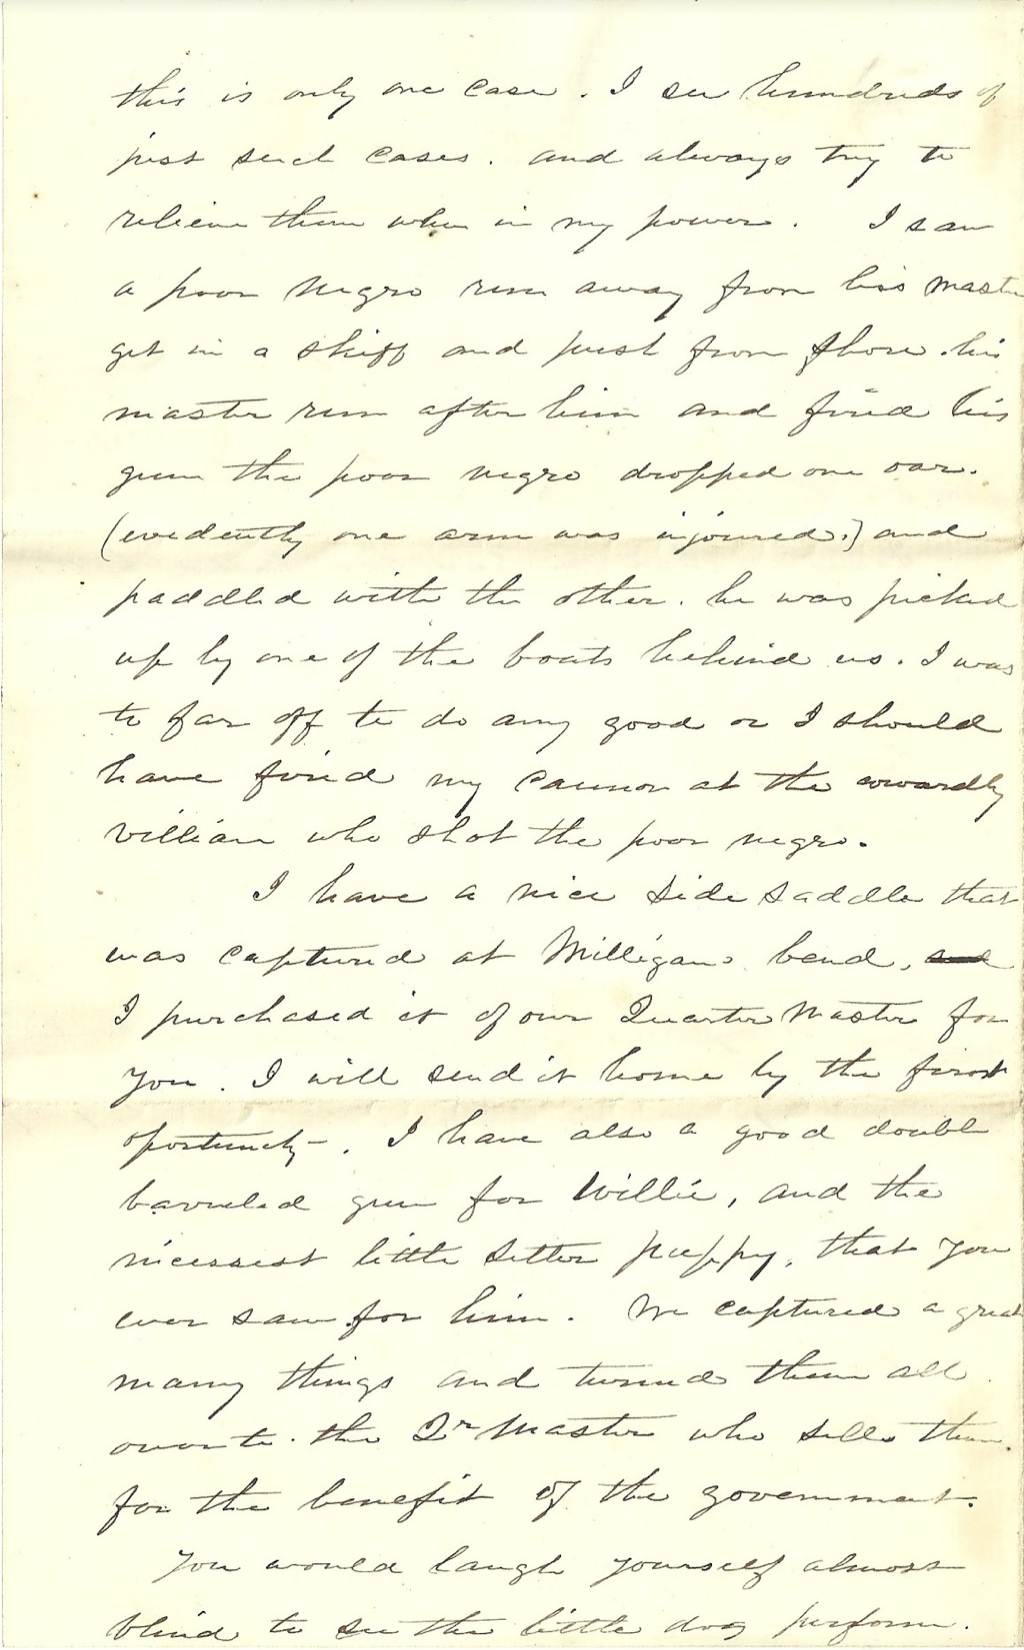 this is only one case. I see hundreds of
just such cases. and always try to
relieve them when in my power. I saw
a poor negro run away from his master
get in a skiff and push from shore. his
master run after him and fired his
gun the poor negro dropped one oar.
(evidently one arm was injoured.) and
paddled with the other. he was picked
up by one of the boats behind us. I was
to far off to do any good or I should
have fired my cannon at the cowardly
villian who shot the poor negro.
I have a nice side saddle that
was captured at Milligans bend,
I purchased it of our Quarter Master for
you. I will send it home by the first
oportunity. I have also a good double
barreled gun for Willie, and the
nicessest little setter puppy, that you
ever saw for him. We captured a great
many things and turned them all
over to the Qr Master who sells them
for the benefit of the government.
You would laugh yourself almost
blind to see the little dog perform.